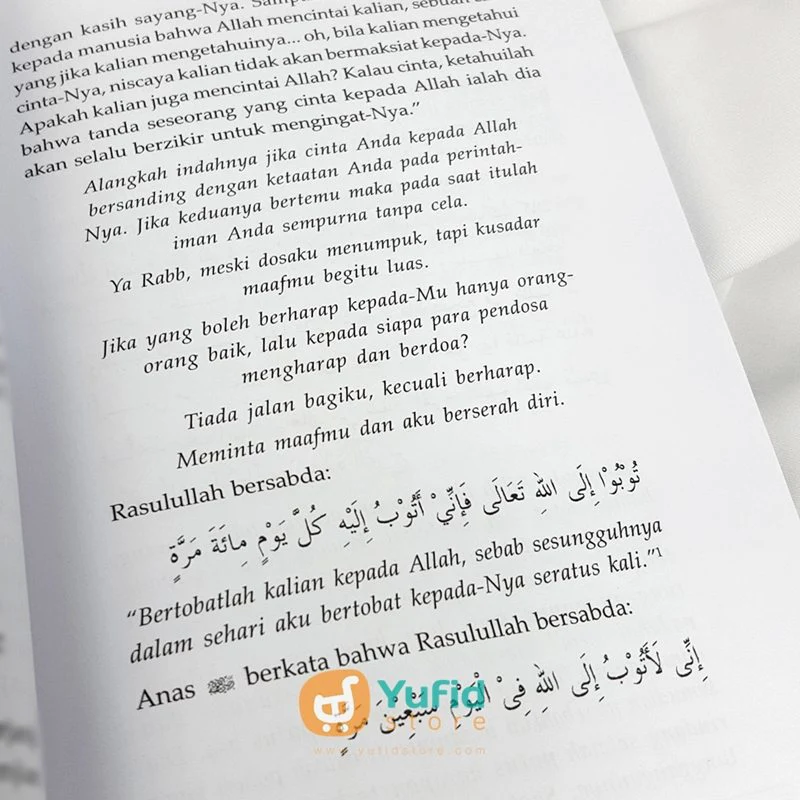 dengan kasih sayang-Nya.
kepada manusia bahwa Allah mencintai kalian, sebuah
yang jika kalian mengetahuinya... oh, bila kalian mengetahui
cinta-Nya, niscaya kalian tidak akan bermaksiat kepada-Nya.
Apakah kalian juga mencintai Allah? Kalau cinta, ketahuilah
bahwa tanda seseorang yang cinta kepada Allah ialah dia
akan selalu berzikir untuk mengingat-Nya.”
Alangkah indahnya jika cinta Anda kepada Allah
bersanding dengan ketaatan Anda pada perintah-
Nya. Jika keduanya bertemu maka pada saat itulah
iman Anda sempurna tanpa cela.
Ya Rabb, meski dosaku menumpuk, tapi kusadar
maafmu begitu luas.
Jika yang boleh berharap kepada-Mu hanya orang-
orang baik, lalu kepada siapa para pendosa
mengharap dan berdoa?
Tiada jalan bagiku, kecuali berharap.
Meminta maafmu dan aku berserah diri.
Rasulullah bersabda:
تُوْبُوْا إِلَى اللهِ تَعَالَى فَإِنِّيْ أَتُوْبُ إِلَيْهِ كُلَّ يَوْمٍ مِائَةَ مَرَّةٍ
“Bertobatlah kalian kepada Allah, sebab sesungguhnya
dalam sehari aku bertobat kepada-Nya seratus kali.”¹
Anas berkata bahwa Rasulullah bersabda:
إِنِّى لَأَتُوْبُ إِلَى اللهِ فِىْ الْيَوْمِ سَبْعِيْنَ مَرَّةٍ
Yufid
store
www.yufidstore.com